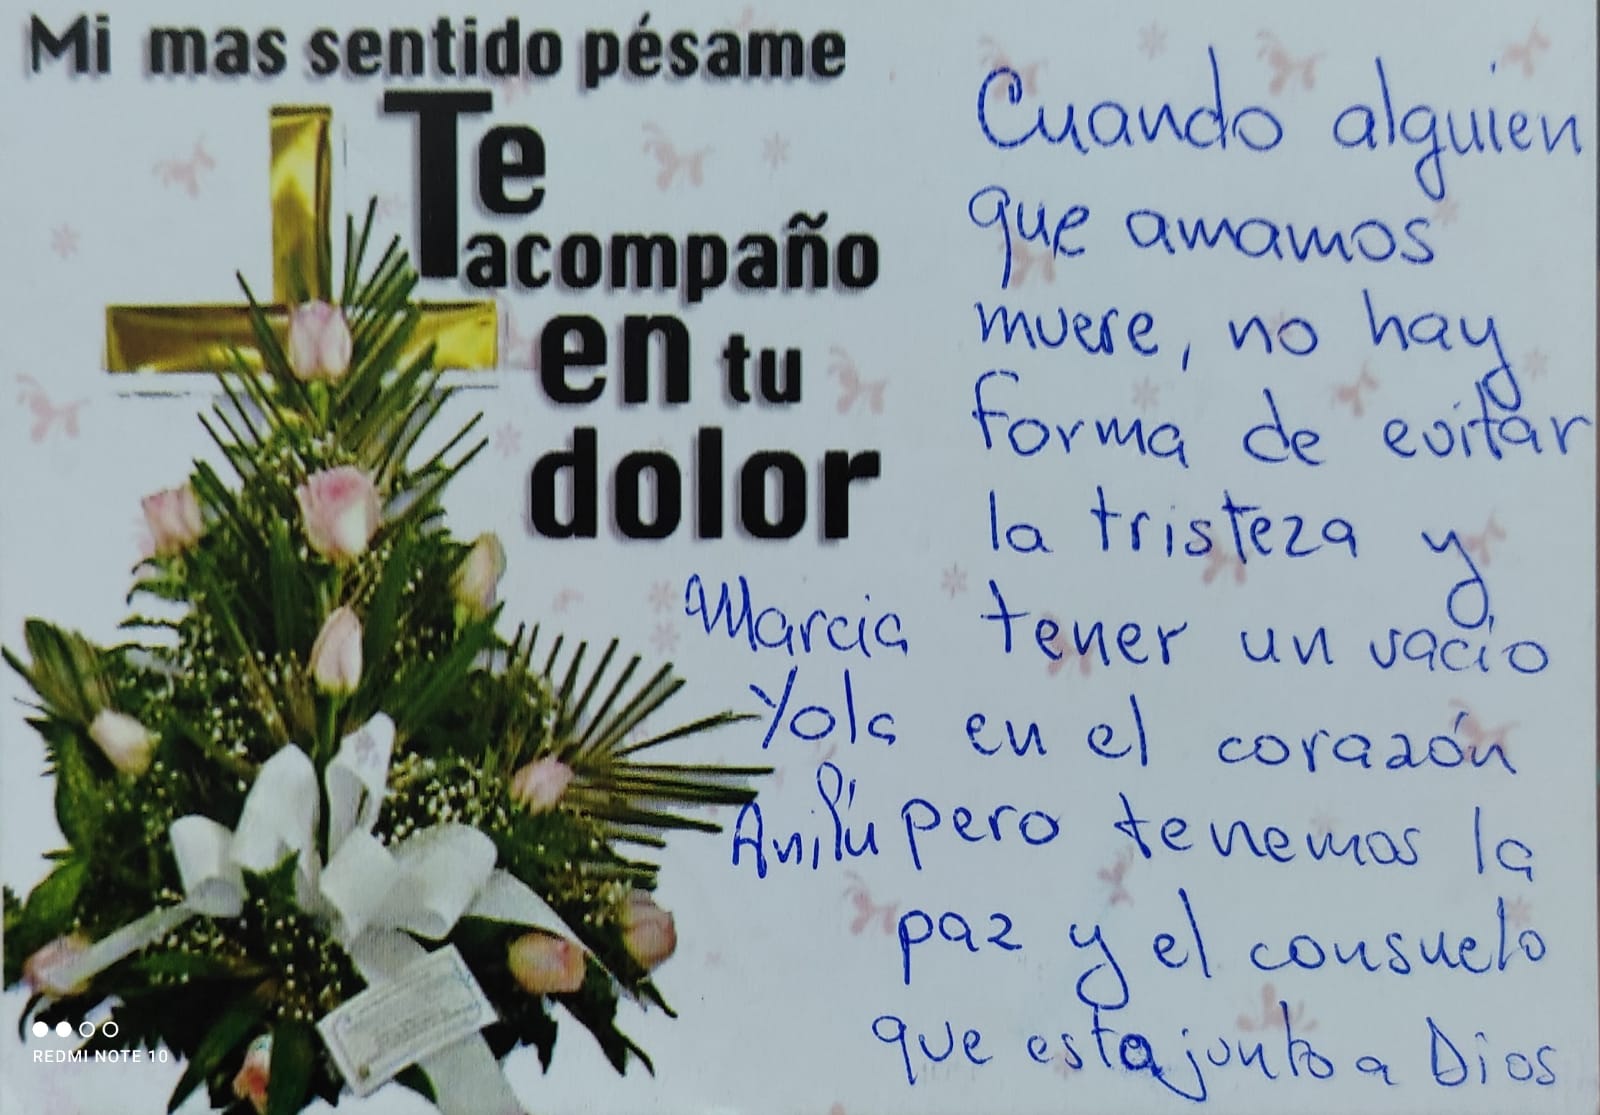 Mi mas sentido pésame
Te
acompaño
en tu
dolor
Cuando alguien
que amamos
muere, no hay
forma de evitar
la tristeza y
tener un vacío
en el corazón
pero tenemos la
paz y el consuelo
que esta junto a Dios
Marcia
Yola
Anilú
REDMI NOTE 10